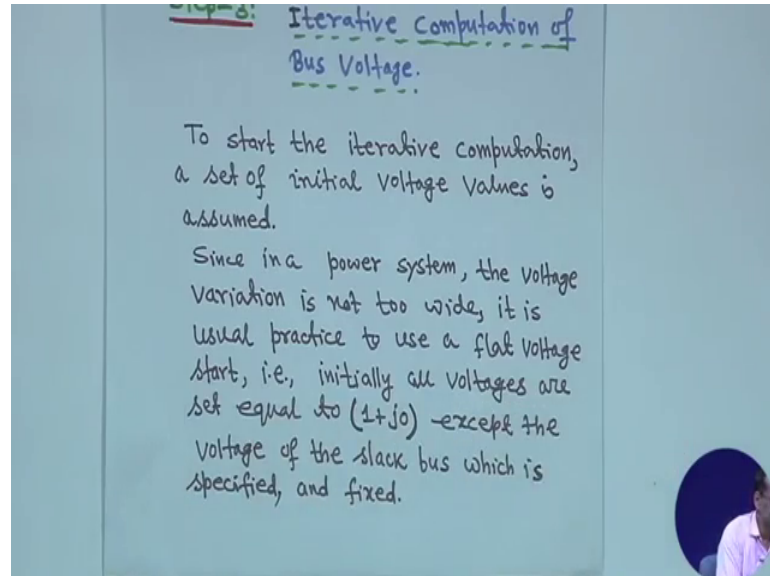 Step-3: Iterative Computation of
Bus Voltage.
To start the iterative computation,
a set of initial voltage values is
assumed.
Since in a power system, the voltage
variation is not too wide, it is
usual practice to use a flat voltage
start, i.e., initially all voltages are
set equal to (1+j0) except the
voltage of the slack bus which is
specified, and fixed.